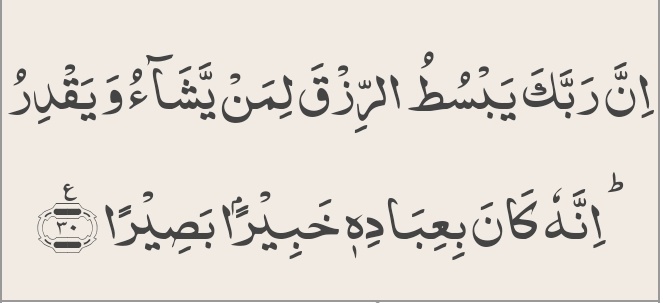 اِنَّ رَبَّكَ يَبْسُطُ الرِّزْقَ لِمَنْ يَّشَآءُ وَ يَقْدِرُ
ؕ اِنَّهٗ كَانَ بِعِبَادِهٖ خَبِيْرًۢا بَصِيْرًا ع ٣٠